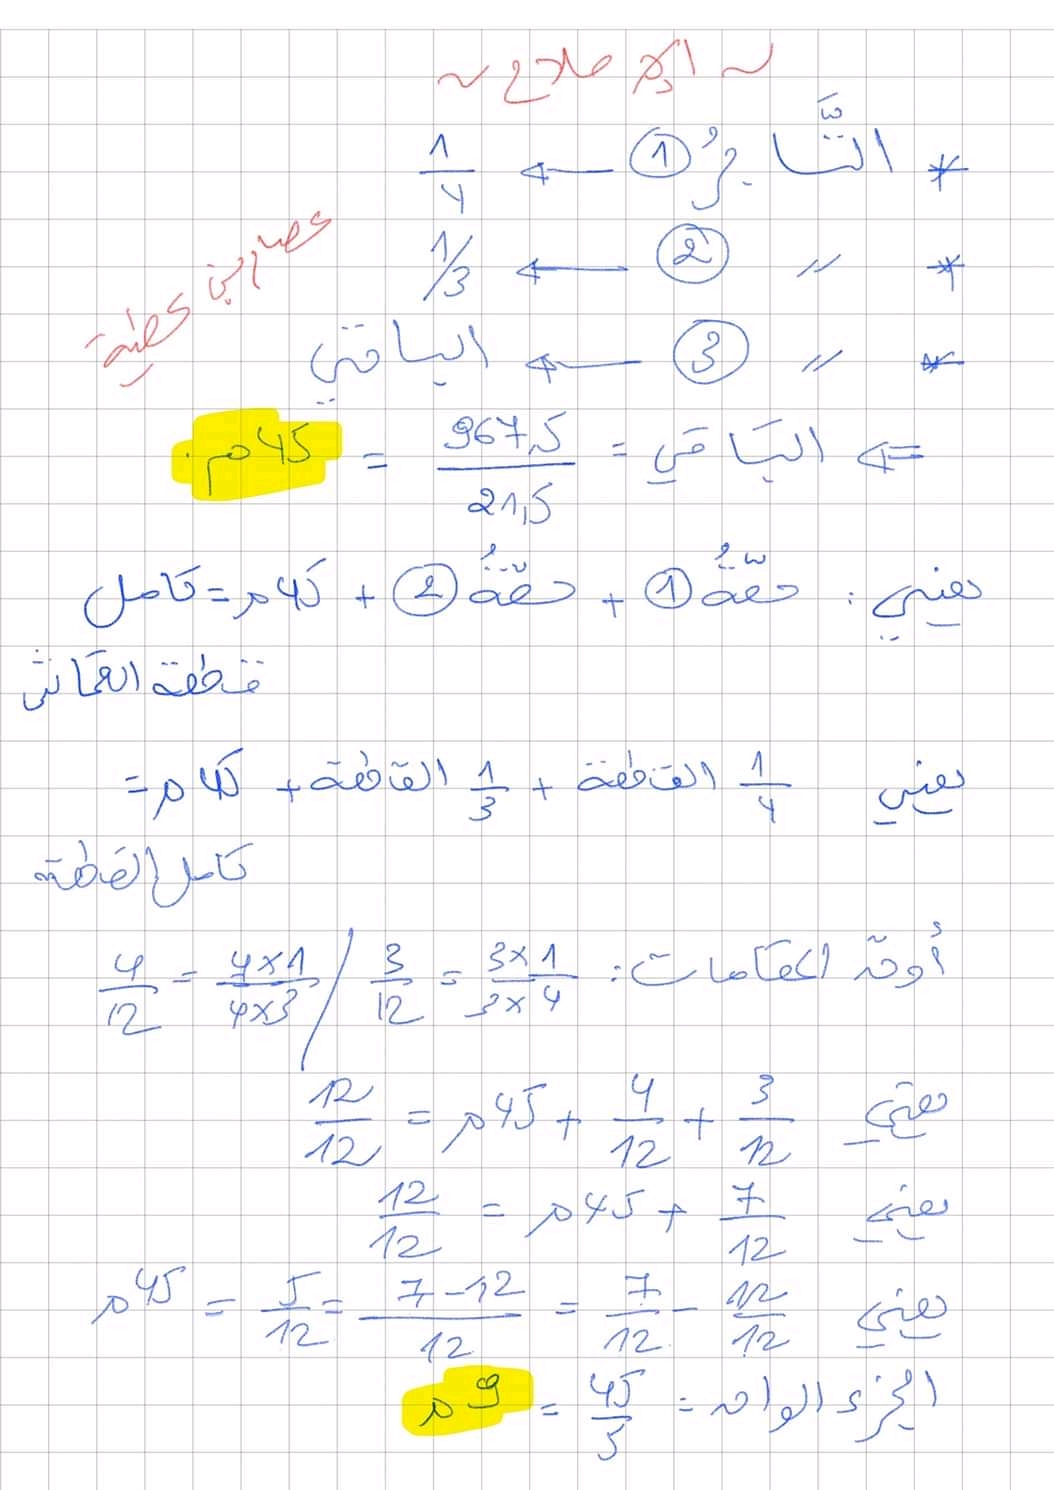 ~ إصلاح ~
* التّاجرُ ① ← 1/4
* // ② ← 1/3
* // ③ ← الباقي
⇐ الباقي = 967,5/21,5 = 45م
يعني : حصّةُ ① + حصّةُ ② + 45م = كامل
قطعة القماش
يعني 1/4 القطعة + 1/3 القطعة + 45م =
كامل القطعة
أوحّد المقامات: 3×1/3×4 = 3/12 / 4×1/4×3 = 4/12
يعني 3/12 + 4/12 + 45م = 12/12
يعني 7/12 + 45م = 12/12
يعني 12/12 - 7/12 = 12-7/12 = 5/12 = 45م
الجزء الواحد = 45/5 = 9م